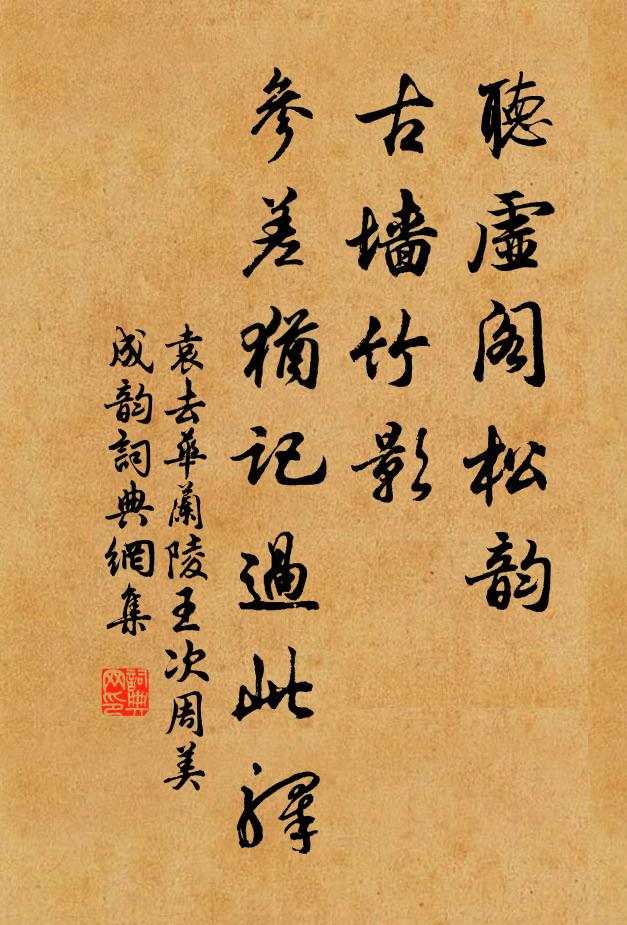 聽虛閣松韵
古墙竹影
參差猶記過此驛
袁去華蘭陵王次周美
成韵詞典網集
詞典
网印